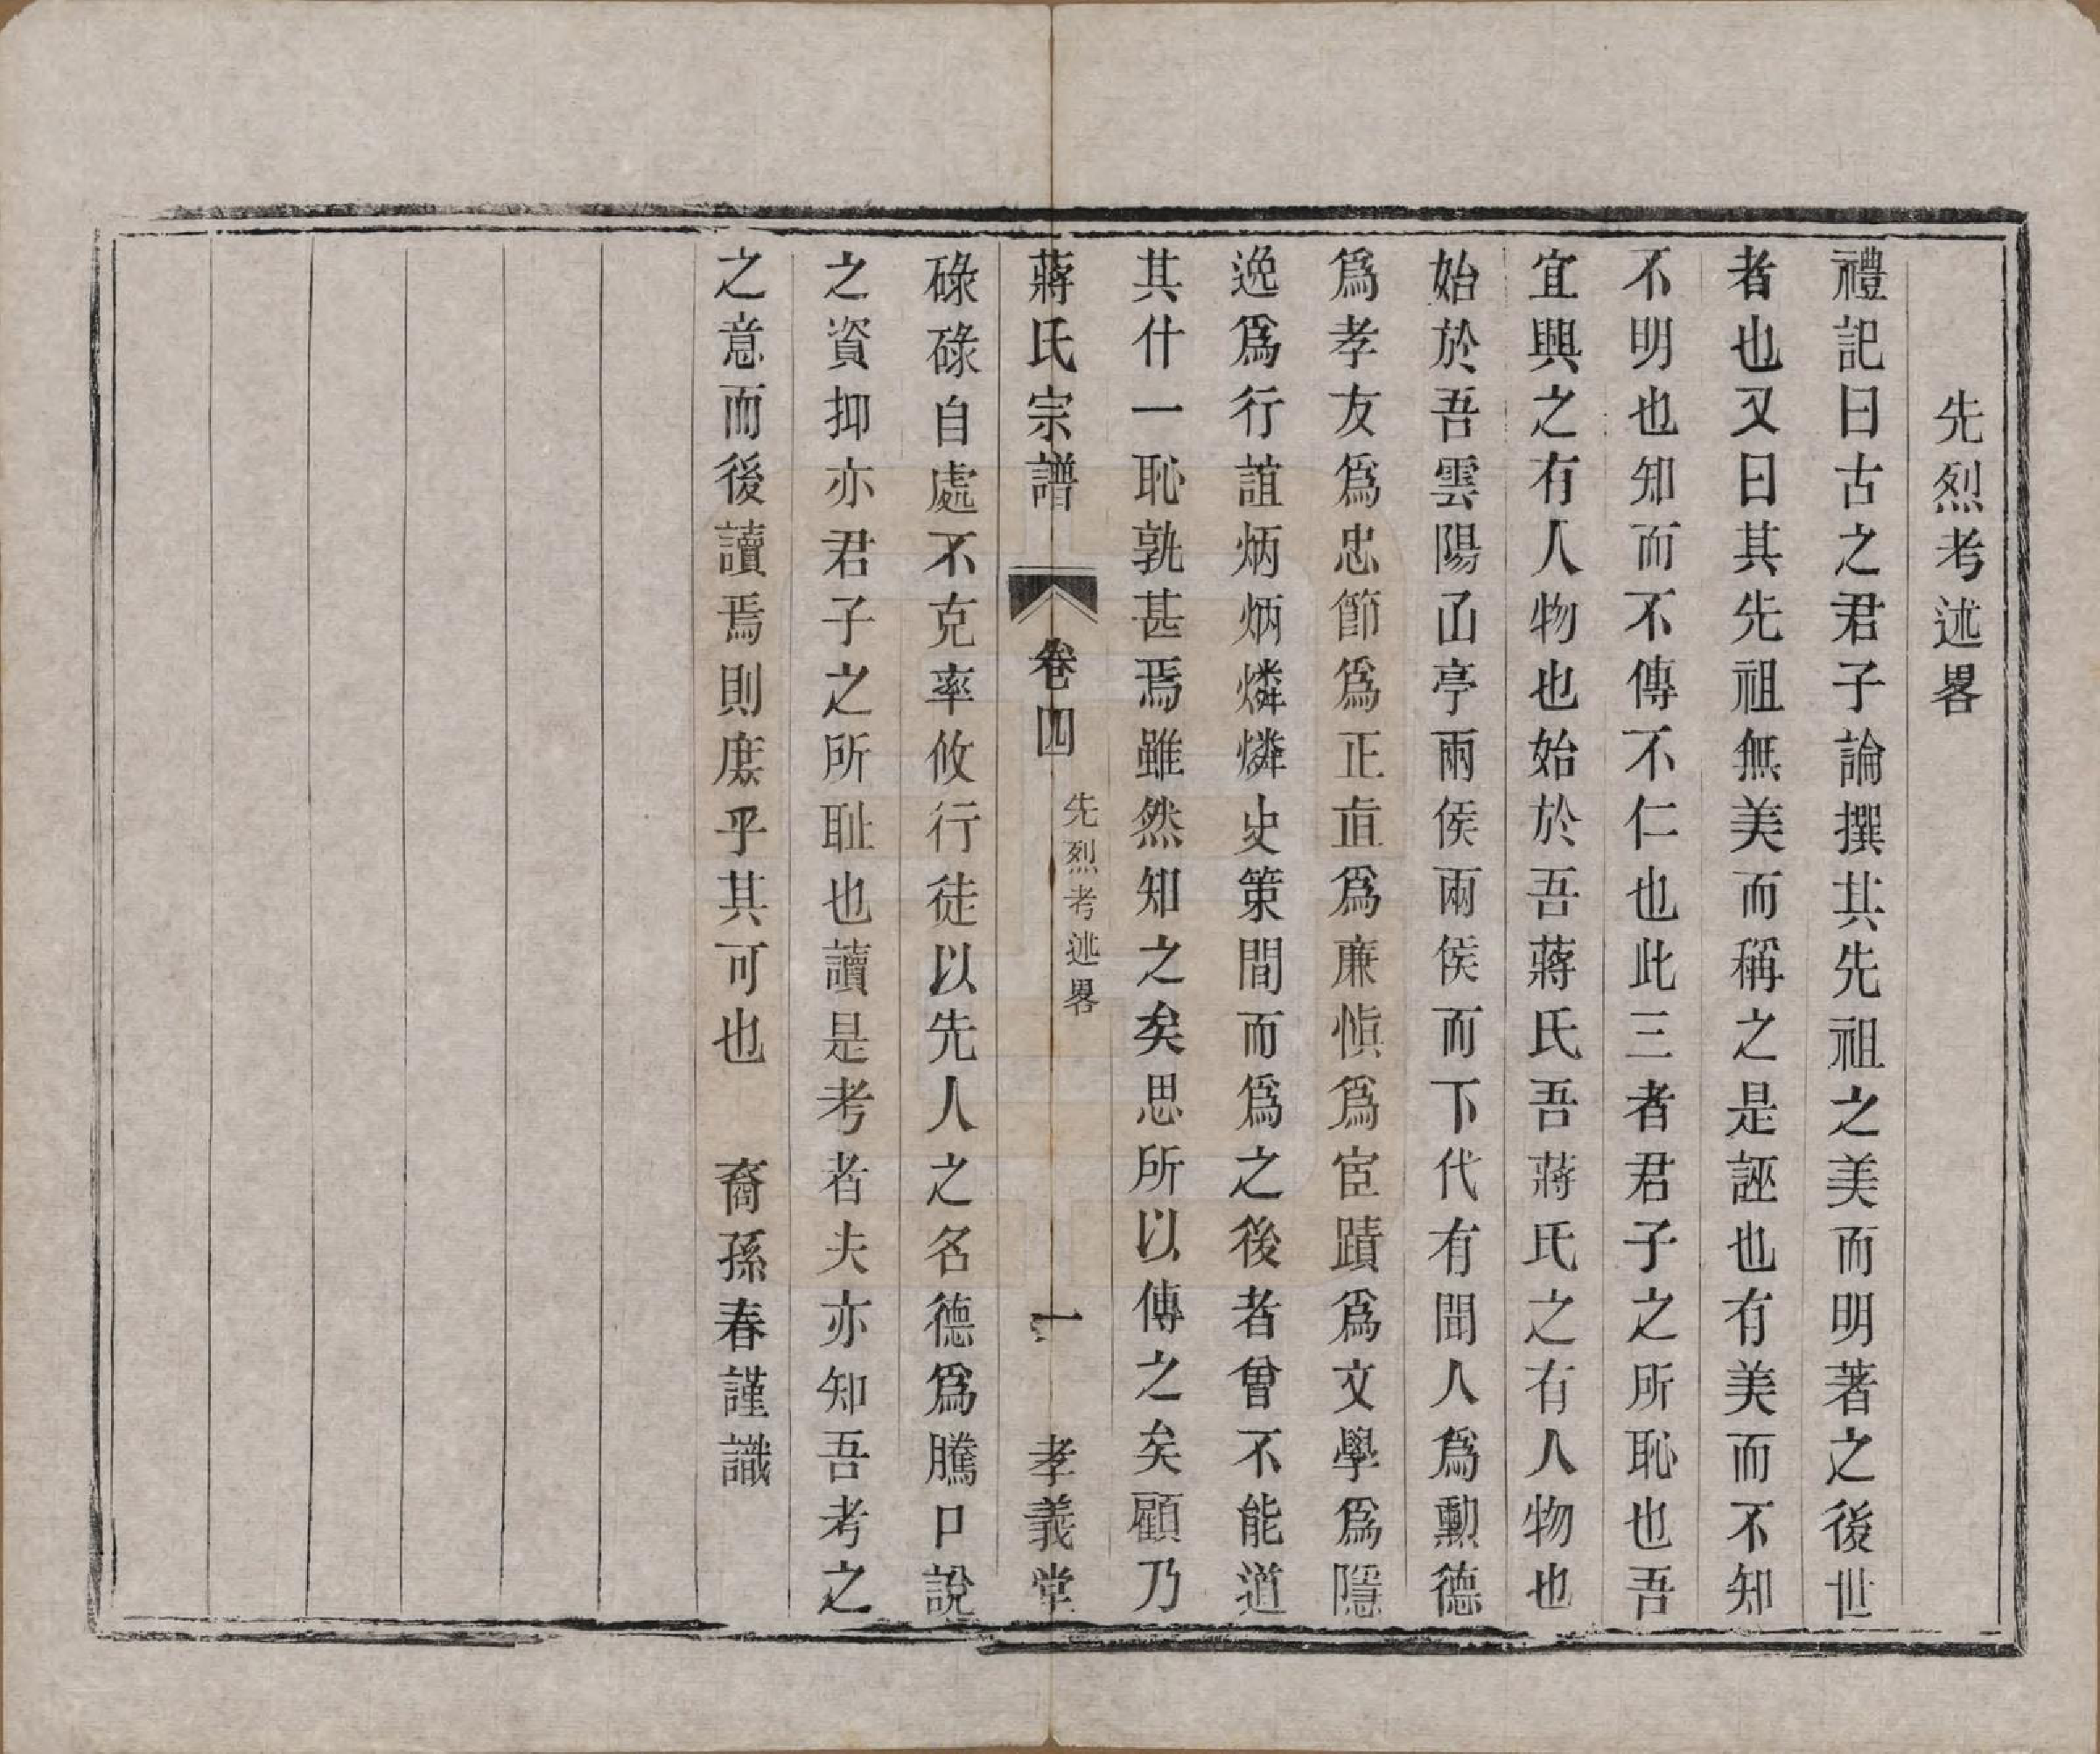 先烈考述畧
禮記曰古之君子論撰其先祖之美而明著之後世
者也又曰其先祖無美而稱之是誣也有美而不知
不明也知而不傳不仁也此三者君子之所恥也吾
宜興之有人物也始於吾蔣氏吾蔣氏之有人物也
始於吾雲陽㓋亭兩侯兩侯而下代有聞人為勳德
為孝友為忠節為正直為廉慎為宦蹟為文學為隱
逸為行誼炳炳燐燐史策間而為之後者曾不能道
其什一恥孰甚焉雖然知之矣思所以傳之矣顧乃
蔣氏宗譜 卷四 先烈考述畧 一 孝義堂
碌碌自處不克率攸行徒以先人之名德為騰口說
之資抑亦君子之所耻也讀是考者夫亦知吾考之
之意而後讀焉則庶乎其可也 裔孫春謹識